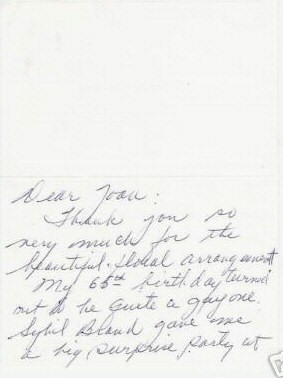 Dear Joan:
Thank you so
very much for the
beautiful floral arrangement
My 65th birthday turned
out to be quite a gay one.
Sybil Brand gave me
a big surprise party at